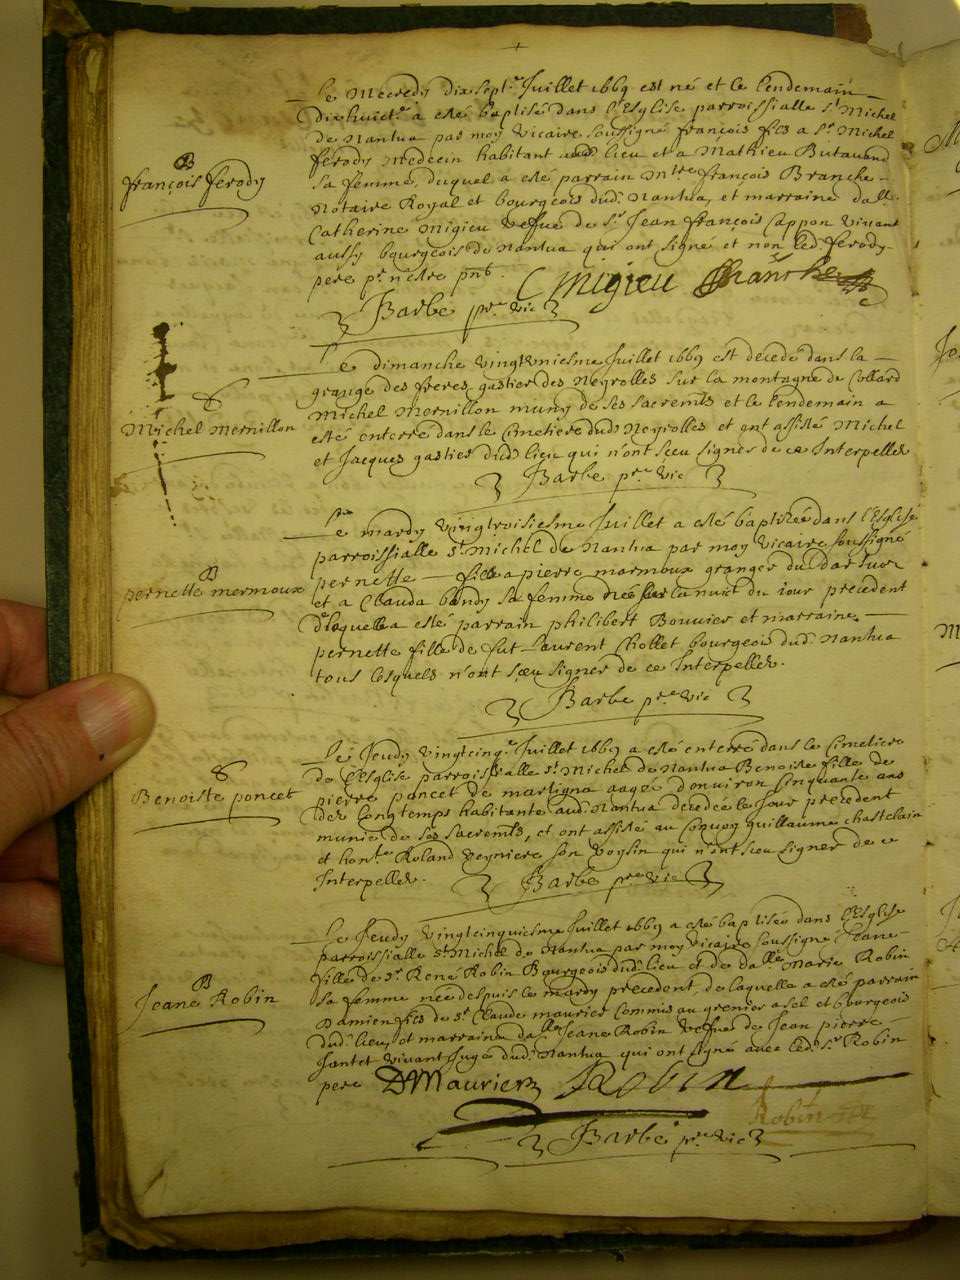 Le Mecredy dix sept.e Juillet 1669 est né et le lendemain
Dixhuict.e a esté baptisé dans l'Esglise parroissialle s.t Michel
de Nantua par moy vicaire soussigné françois fils a s.r Michel
ferody Medecin habitant aud. lieu et a Mathieu Butavand
B
françois ferody
sa femme, duquel a esté parrain m.tre françois Branche
Notaire Royal et bourgeois dud. Nantua, et marraine da.lle
Catherine Migieu vefue de s.r Jean françois Cappon vivant
aussy bourgeois de Nantua qui ont signé et non led. ferody
pere p.r n'estre p.nt.
C migieu Branche
Barbe p.re vic
Le dimanche vingtuniesme Juillet 1669 est decedé dans la
grange des freres gastier des Neyrolles sur la montagne de Collard
Michel Mornillon muny de ses sacrem.ts et le lendemain a
Michel Mernillon
esté enterré dans le Cimetiere dud. Neyrolles et ont assisté Michel
et Jacques gastier dud. lieu qui n'ont sceu signer de ce Interpellés
Barbe p.re vic
Le mardy vingtroisiesme Juillet a esté baptizée dans l'Esglise
parroissialle s.t Michel de Nantua par moy vicaire soussigné
B
pernette mermoux
pernette fille a pierre marmoux granger du
et a Clauda bondy sa femme née sur la nuit du iour precedent
de laquelle a esté parrain philibert Bouvier et marraine
pernette fille de fut Laurent Chollet bourgeois dud. Nantua
tous lesquels n'ont sceu signer de ce Interpellés.
Barbe p.re vic
Le Jeudy vingtcinq.e Juillet 1669 a esté enterré dans le Cimetiere
de l'Esglise parroissialle s.t Michel de Nantua Benoiste fille de
Benoiste poncet
pierre poncet de martigna aagée d'environ cinquante ans
de longtemps habitante aud. Nantua decedée le Jour precedent
munie de ses sacrem.ts, et ont assisté au convoy guillaume chastelain
et hon.te Roland veyniere son voysin qui n'ont sceu signer de ce
Interpellés.
Barbe p.re vic
Le Jeudy vingtcinquiesme Juillet 1669 a esté baptisée dans l'Esglise
parroissialle s.t Michel de Nantua par moy vicaire soussigné Jeane
fille de s.r René Robin Bourgeois dud. lieu et de da.lle Marie Robin
B
Jeane Robin
sa femme née despuis le mardy precedent, de laquelle a esté parrain
Damien fils de s.r Claude maurier Commis au grenier a sel et bourgeois
dud. lieu, et marraine da.lle Jeane Robin vefue de Jean pierre
Jantet vivant Juge dud. Nantua qui ont signé avec led. s.r Robin
pere DMaurier Robin
Robin
Barbe p.re vic